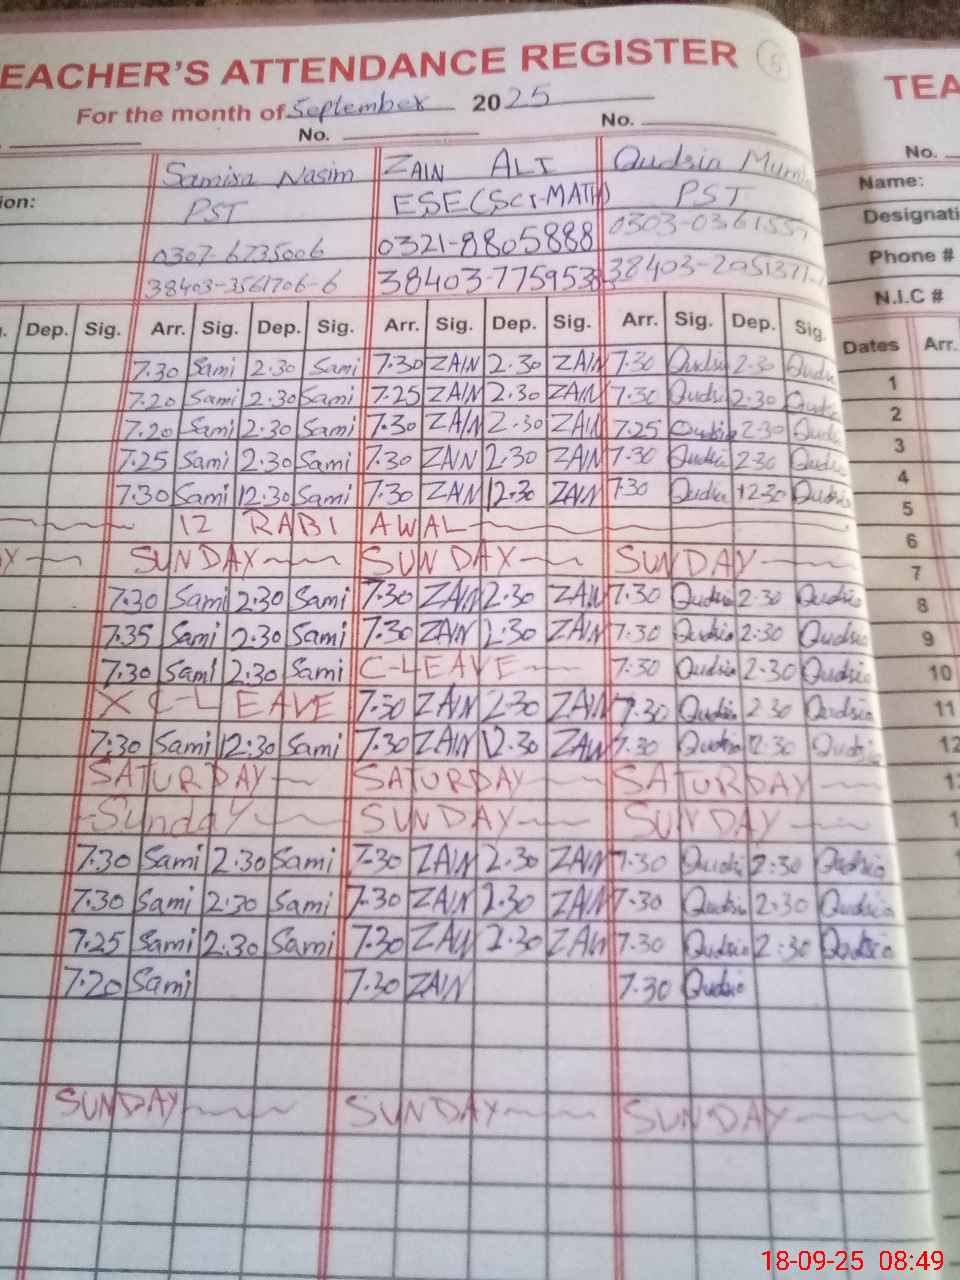 EACHER'S ATTENDANCE REGISTER 5
For the month of September 2025
No. No.
Samisa Nasim ZAIN ALI Qudsia
PST ESE(Sci-MATH) PST
0307-6735006 0321-8805888
TEA
No.
Name:
Designati
Phone #
N.I.C #
ion:
Dep. Sig. Arr. Sig. Dep. Sig. Arr. Sig. Dep. Sig. Arr. Sig. Dep. Sig. Dates Arr.
7.30 Sami 2.30 Sami 7.30 ZAIN 2.30 ZAIN 7.30 Qudsia 2.30 Qudsi 1
7.20 Sami 2.30 Sami 7.25 ZAIN 2.30 ZAIN 7.30 Qudsi 2.30 Qudsi 2
7.20 Sami 2.30 Sami 7.30 ZAIN 2.30 ZAIN 7.25 Qudsia 2.30 Qudsi 3
7.25 Sami 2.30 Sami 7.30 ZAIN 2.30 ZAIN 7.30 Qudsia 2.30 Qudsi 4
7.30 Sami 12.30 Sami 7.30 ZAIN 12.30 ZAIN 7.30 Qudsia 12.30 Qudsia 5
12 RABI AWAL 6
SUNDAY SUNDAY SUNDAY 7
7.30 Sami 2.30 Sami 7.30 ZAIN 2.30 ZAIN 7.30 Qudsia 2.30 Qudsia 8
7.35 Sami 2.30 Sami 7.30 ZAIN 2.30 ZAIN 7.30 Qudsia 2.30 Qudsia 9
7.30 Sami 2.30 Sami C-LEAVE 7.30 Qudsia 2.30 Qudsia 10
X C-LEAVE 7.30 ZAIN 2.30 ZAIN 7.30 Qudsia 2.30 Qudsia 11
7:30 Sami 12:30 Sami 7.30 ZAIN 12.30 ZAIN 7.30 Qudsia 12:30 Qudsia 12
SATURDAY SATURDAY SATURDAY
Sunday SUNDAY SUNDAY
7.30 Sami 2.30 Sami 7.30 ZAIN 2.30 ZAIN 7.30 Qudsia 2:30 Qudsia
7.30 Sami 2.30 Sami 7.30 ZAIN 2.30 ZAIN 7.30 Qudsia 2:30 Qudsia
7.25 Sami 2.30 Sami 7.30 ZAIN 2.30 ZAIN 7.30 Qudsia 2:30 Qudsia
7.20 Sami 7.30 ZAIN 7.30 Qudsia
SUNDAY SUNDAY SUNDAY
18-09-25 08:49